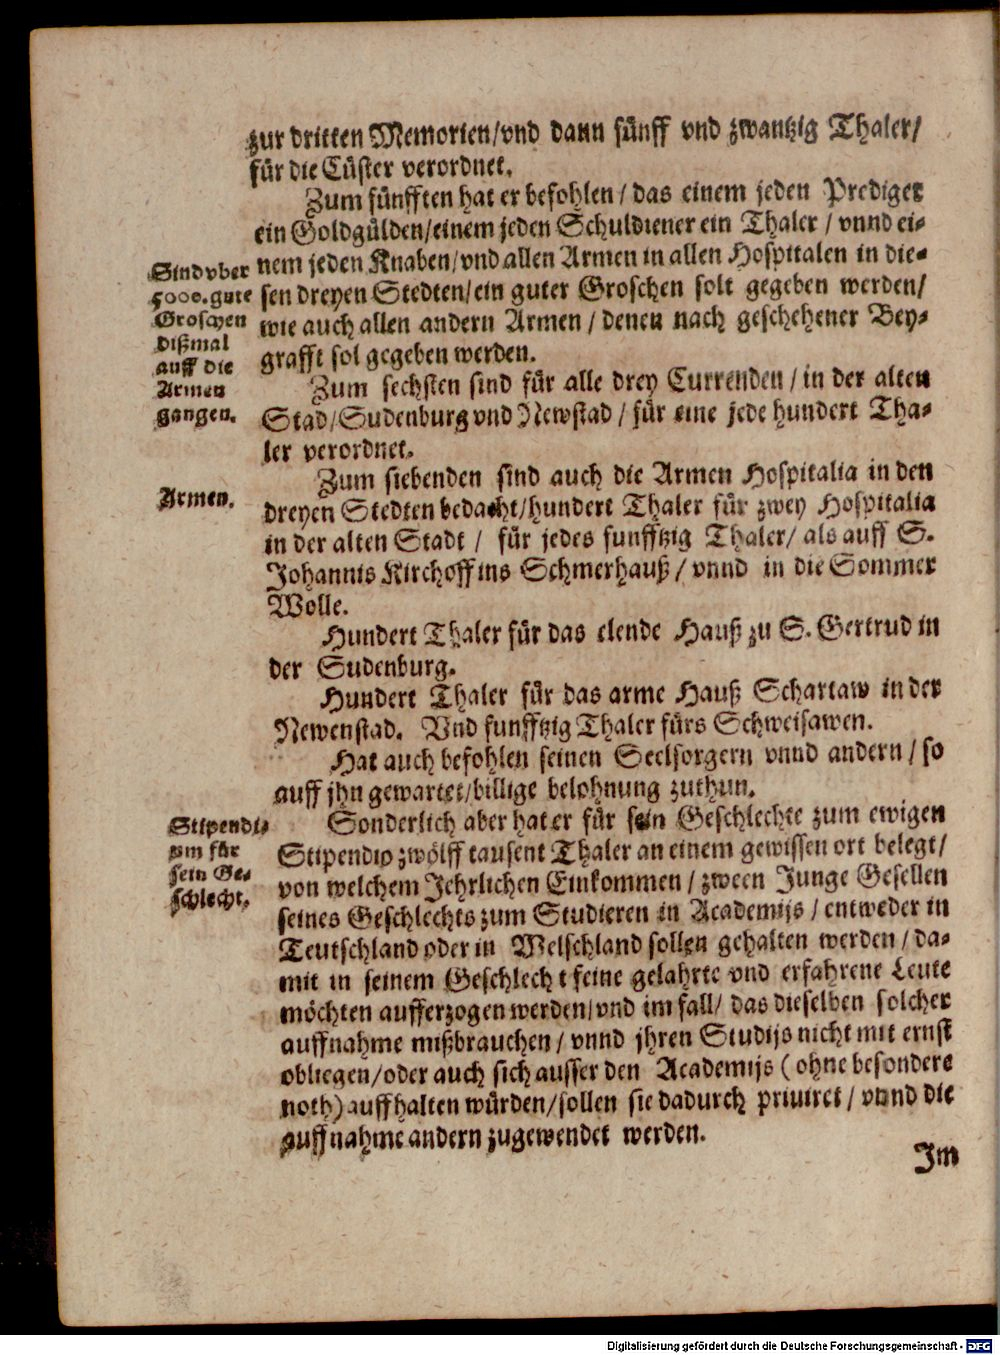 zur dritten Memorien/vnd dann fünff vnd zwantzig Thaler/
für die Cüster verordnet.
Zum fünfften hat er befohlen / das einem jeden Prediger
ein Goldgülden/einem jeden Schuldiener ein Thaler / vnnd ei-
nem jeden Knaben/vnd allen Armen in allen Hospitalen in die-
sen dreyen Stedten/ein guter Groschen solt gegeben werden/
wie auch allen andern Armen / denen nach geschehener Bey-
grafft sol gegeben werden.
Sind vber
5000. gute
Groschen
dißmal
auff die
Armen
gangen.
Zum sechsten sind für alle drey Currenden / in der alten
Stad/Sudenburg vnd Newstad / für eine jede hundert Tha-
ler verordnet.
Zum siebenden sind auch die Armen Hospitalia in den
dreyen Stedten bedacht/hundert Thaler für zwey Hospitalia
in der alten Stadt / für jedes funfftzig Thaler/ als auff S.
Johannis Kirchoff ins Schmerhauß / vnnd in die Sommer
Wolle.
Armen.
Hundert Thaler für das elende Hauß zu S. Gertrud in
der Sudenburg.
Hundert Thaler für das arme Hauß Schartaw in der
Newenstad. Vnd funfftzig Thaler fürs Schweisawen.
Hat auch befohlen seinen Seelsorgern vnnd andern / so
auff jhn gewartet/billige belohnung zuthun.
Sonderlich aber hat er für sein Geschlechte zum ewigen
Stipendio zwölff tausent Thaler an einem gewissen ort belegt/
von welchem Jehrlichen Einkommen / zween Junge Gesellen
seines Geschlechts zum Studieren in Academijs / entweder in
Teutschland oder in Welschland sollen gehalten werden / da-
mit in seinem Geschlecht feine gelahrte vnd erfahrene Leute
möchten aufferzogen werden/vnd im fall/ das dieselben solcher
auffnahme mißbrauchen / vnnd jhren Studijs nicht mit ernst
obliegen/oder auch sich ausser den Academijs ( ohne besondere
noth) auffhalten würden/sollen sie dadurch priuiret / vnnd die
auffnahme andern zugewendet werden.
Stipendi-
um für
sein Ge-
schlecht.
Im
Digitalisierung gefördert durch die Deutsche Forschungsgemeinschaft - DFG